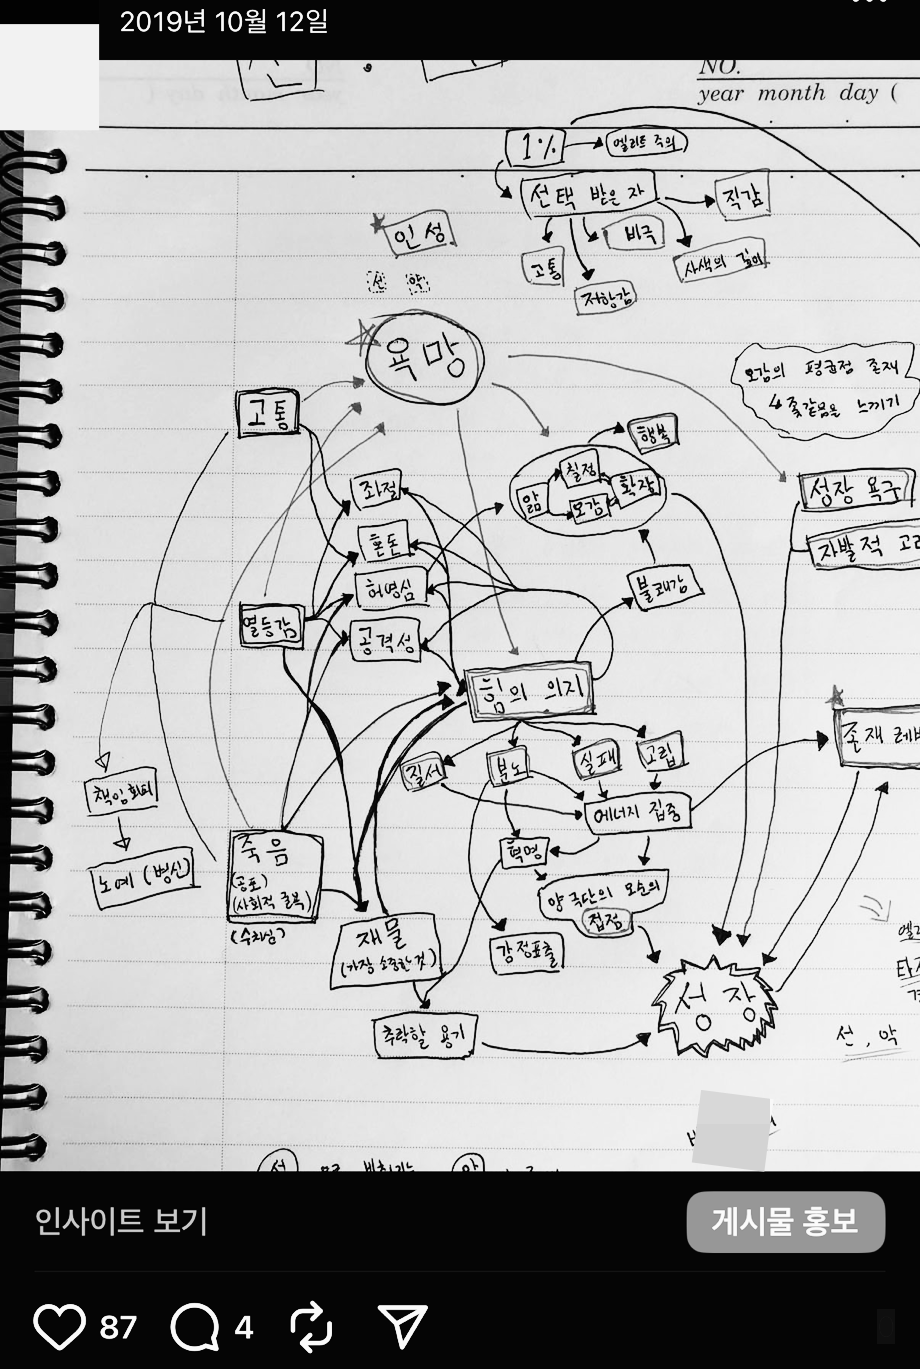 2019년 10월 12일
NO.
year month day (
1%
엘리트 주의
선택 받은 자
직감
인성
비극
고통
사색의 깊이
선 악
저항감
욕망
오감의 평균점 존재
↳ 좆같음을 느끼기
고통
행복
칠정
앎
확장
오감
성장 욕구
좌절
혼돈
자발적 고
허영심
불쾌감
열등감
공격성
힘의 의지
존재 레
질서
분노
실패
고립
책임회피
에너지 집중
혁명
죽음
(공포)
(사회적 굴복)
(수치심)
노예 (병신)
양 극단의 모순의
접점
재물
(가장 소중한 것)
감정표출
성장
추락할 용기
선, 악
인사이트 보기
게시물 홍보
87
4